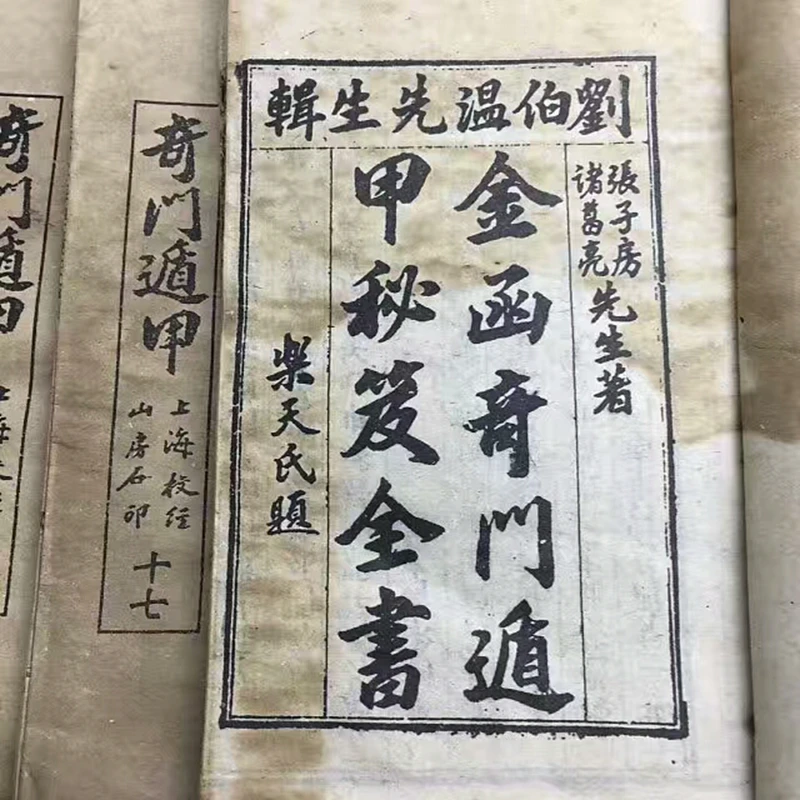 劉伯温先生輯
張子房
諸葛亮
先生著
金函奇門遁
甲秘笈全書
樂天氏題
奇門遁甲
上海校經
山房石印
十七
奇門遁甲
上海